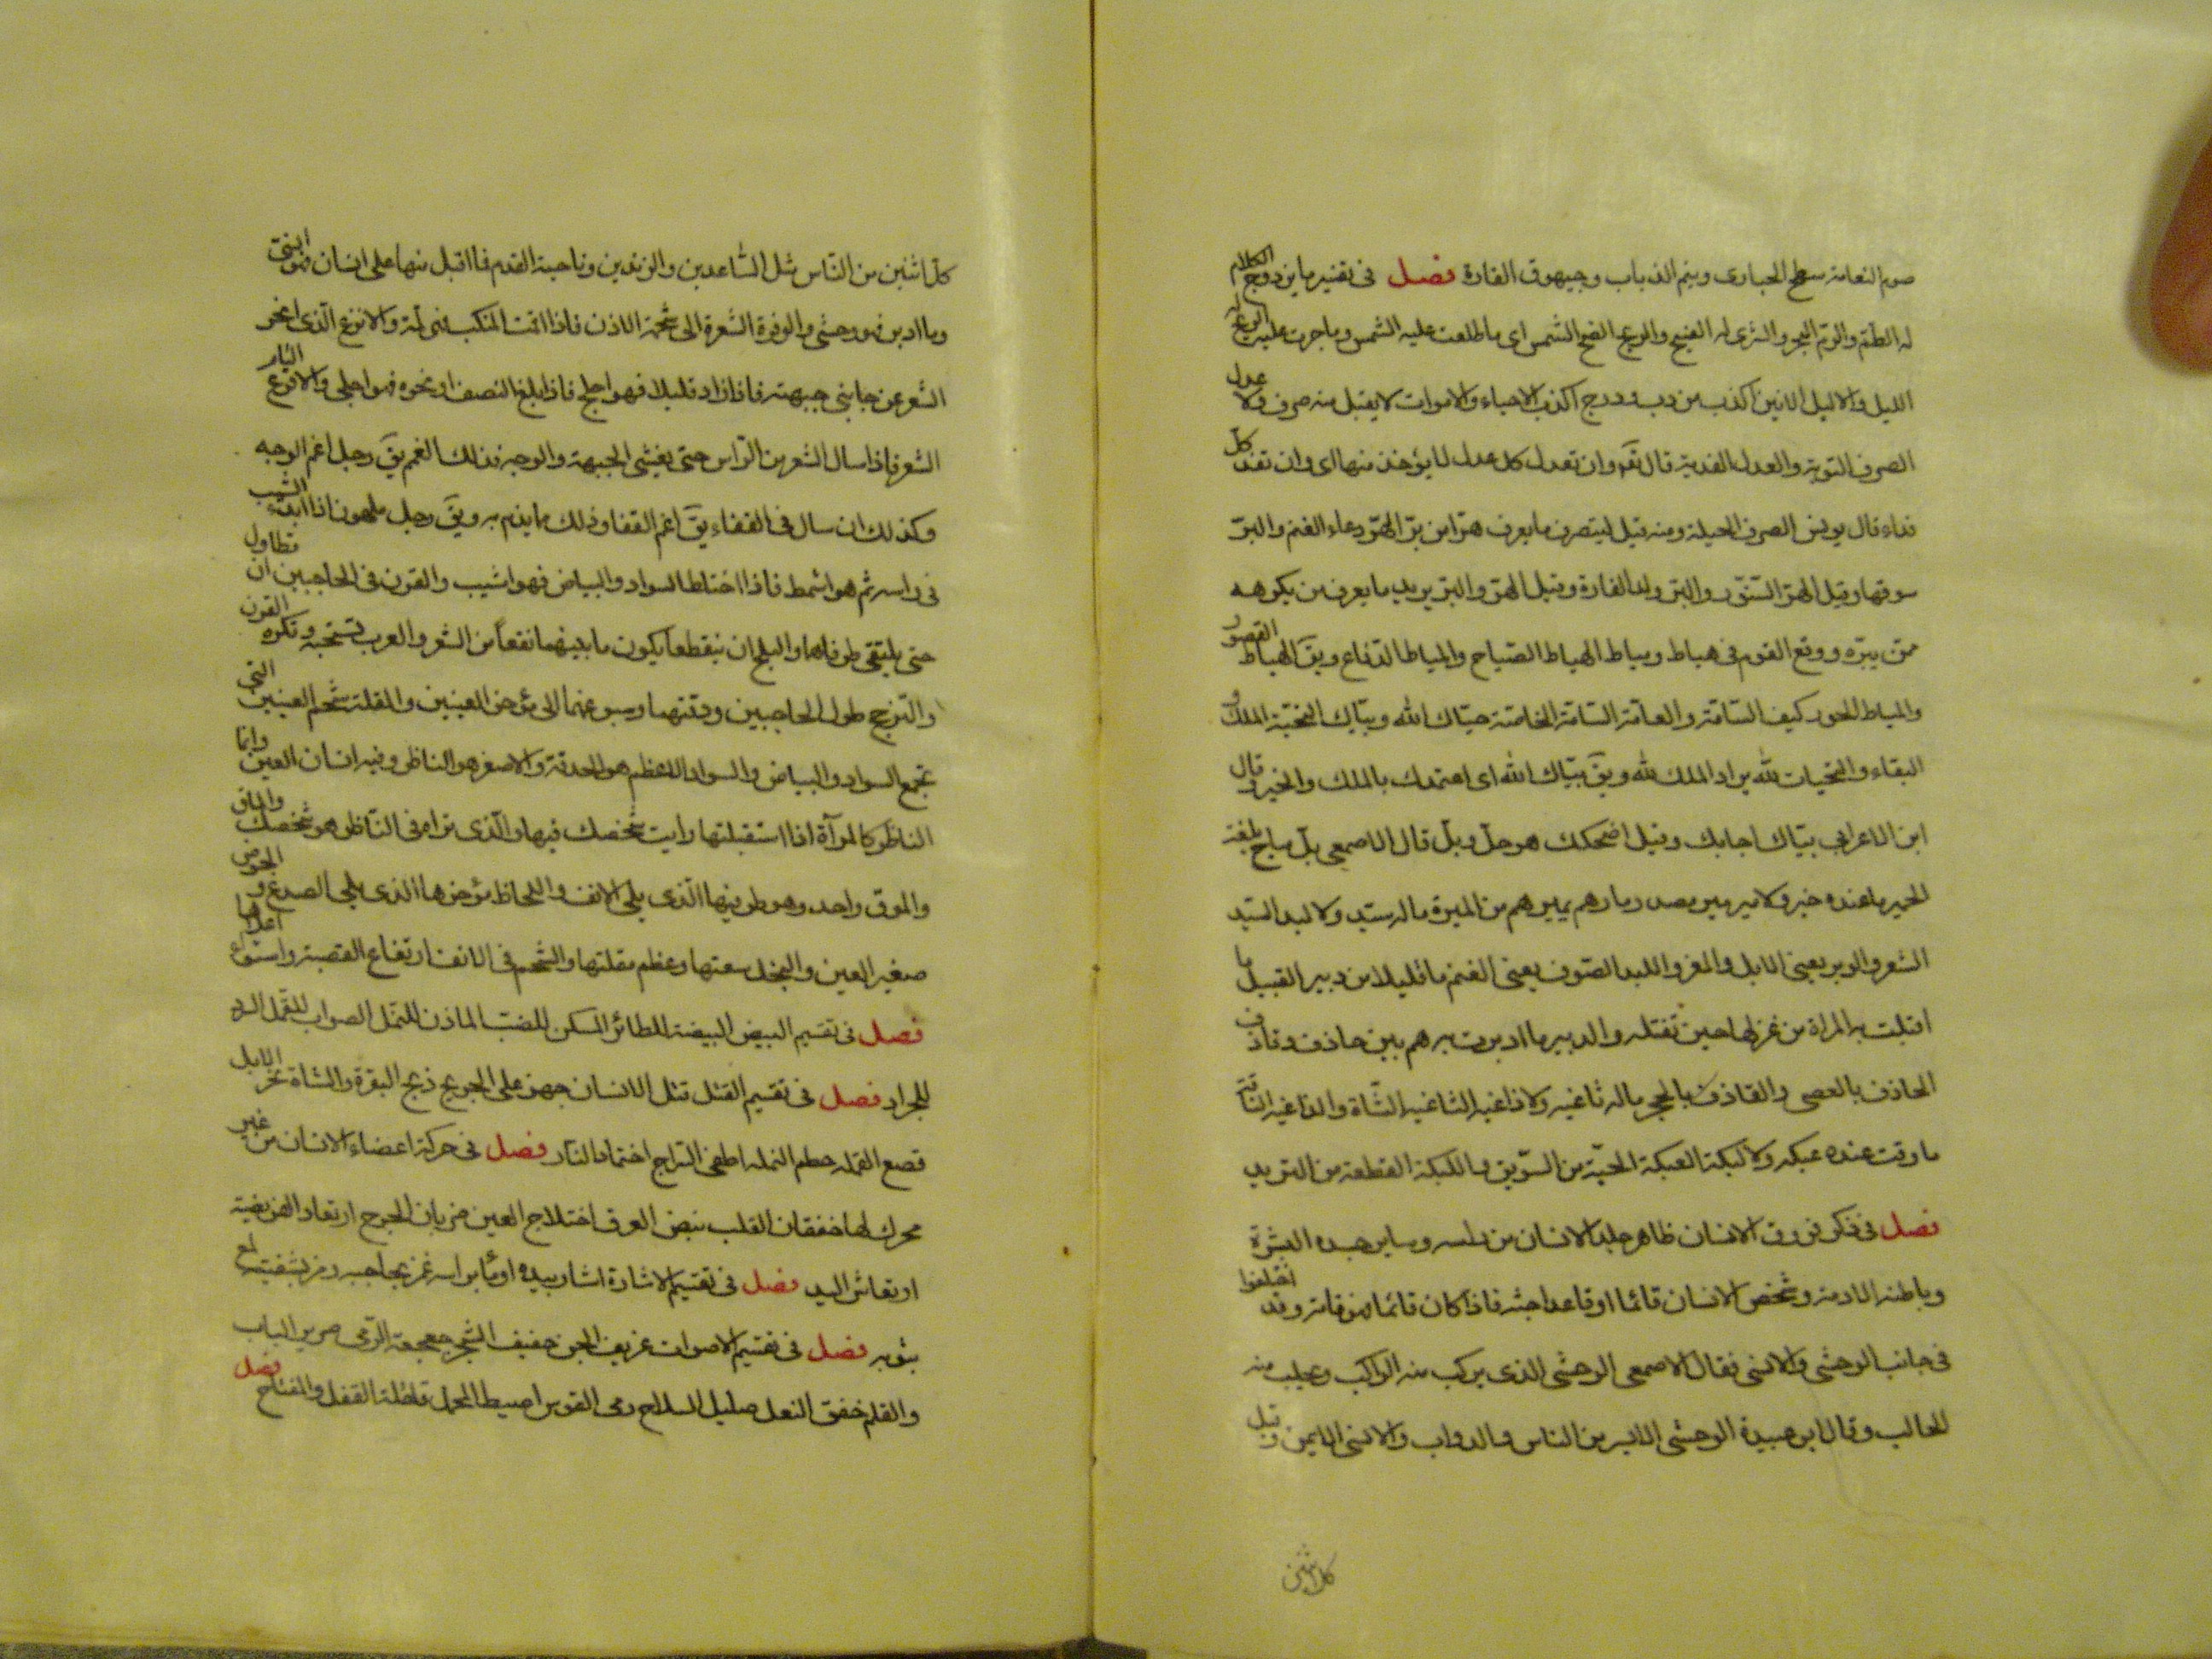 صوم النعامة سطح الحبارى وينم الذباب وجيهوق الفارة فصل فى تفسير ما يزدوج الكلام
له الطم والرم البحر والثرى له الضيح والريح الضح الشمس اى ما طلعت عليه الشمس وما جرت عليه الريح
الليل والاليل الانين اكذب من دب ودرج اكذب الاحياء والاموات لا يقبل منه صرف ولا عدل
الصرف التوبة والعدل الفدية قال تقَ وان تعدل كل عدل لا يؤخذ منها اى وان تفد كل
فداء قال يونس الصرف الحيلة ومنه قيل ليتصرف ما يعرف هرّا من برّ الهرّ دعاء الغنم والبرّ
سوقها وقيل الهرّ السنّور والبرّ ولد الفارة وقيل الهرّ والبرّ يريد ما يعرف من يكرهه
ممّن يبرّه ووقع القوم فى هياط ومياط الهياط الصّياح والمياط الدّفاع ويقَ الهياط القصور
والمياط للحور كيف السّامّة والعامّة السّامّة الخاصّة حيّاك الله وبيّاك التحيّة الملك و
البقاء والتحيات لله يراد الملك لله ويقَ بيّاك الله اى اعتمدك بالملك والخير وقال
ابن الاعرابى بيّاك اجابك وقيل اضحكك هو حلّ وبلّ قال الاصمعى بلّ مباح بلغة
الحمير ما عنده خير ولا مير مير مصدر مارهم يميرهم من الميرة ماله سبد ولا لبد السّبد
الشعر والوبر يعنى الابل والمعز واللبد الصّوف يعنى الغنم ما قبيلا من دبير القبيل ما
اقبلت به المراة من غزلها حين تفتله والدبير ما ادبرت به هم بين حاذف وقاذف
الحاذف بالعصى والقاذف بالحجر ماله ثاغيه ولا راغيه الثاغيه الشّاة والراغيه النّاقة
ما ذقت عنده عبكه ولا لبكة العبكة الحبّة من السّويق واللبكة القطعة من الثريد
فصل فى ذكر فروق الانسان ظاهر جلد الانسان من راسه وساير جسده البشرة
وباطنه الادمة وشخص الانسان قائما او قاعدا جثه فاذا كان قائما فهو قامة وقد اختلفوا
فى جانب الوحشى والانسى فقال الاصمعى الوحشى الذى يركب منه الراكب ويحلب منه
الحالب وقال ابو عبيدة الوحشى الايسر من الناس والدواب والانسى الايمن وقيل
كل اثنين
كل اثنين من النّاس مثل السّاعدين والزندين وناحية القدم فما اقبل منها على انسان فهو انسى
وما ادبر فهو وحشى والوفرة الشعرة الى شحمة الاذن فاذا المّت المنكب فهى لمّة والانزع الّذى انحسر
الشعر عن جانبى جبهته فاذا زاد قليلا فهو اجلح فاذا بلغ النصف او نحوه فهو اجلى والافرع التام
الشعر فاذا سال الشعر من الرّاس حتى يغشى الجبهة والوجه فذلك الغمم يقَ رجل اغم الوجه
وكذلك ان سال فى القفاء يقَ اغم القفا وذلك مما يذم به ويقَ رجل ملهون اذا ابتدء الشيب
فى راسه ثم هو اشمط فاذا اختلط السواد والبياض فهو اشيب والقرن فى الحاجبين ان تطاول
حتى يلتقى طرفاهما والبلج ان ينقطعا يكون ما بينهما نقعاً من الشعر والعرب تستحبه وتكره القرن
والتزجج طول الحاجبين ودقتهما وسبوغهما الى مؤخر العينين والمقلة شحم العينين التى
تجمع السواد والبياض والسواد الاعظم هو الحدقة والاصغر هو الناظر وفيه انسان العين وانما
الناظر كالمرآة اذا استقبلتها رايت شخصك فيها والّذى تراه فى النّاظر هو شخصك والماق
والموق واحد وهو طرفها الّذى يلى الانف واللحاظ مؤخرها الذى يلى الصدغ والحوص
صغير العين والنجل سعتها وعظم مقلتها والشّمم فى الانف ارتفاع القصبة واستواء اعلاها
فصل فى تقسيم البيض البيضة للطائر المكن للضبّ الماذن للنمل الصواب للقمل السرء
للجراد فصل فى تقسيم القتل قتل الانسان جهز على الجريح ذبح البقرة والشاة نحر الابل
قصع القمله حطم النمله اطفى السّراج اخمد النّار فصل فى حركة اعضاء الانسان من غير
محرك لها خفقان القلب نبض العرق اختلاج العين ضربان الجرح ارتعاد الفريصة
ارتعاش اليد فصل فى تقسيم الاشارة اشار بيده اومأ براسه غمز بحاجبه رمز بشفته لمع
بثوبه فصل فى تقسيم الاصوات عزيف الجن حفيف الشجر جعجعة الرّحى صرير الباب
والقلم خفق النعل صليل السلاح رمى القوس اطيط المحمل قلقلة القفل والمفتاح فصل